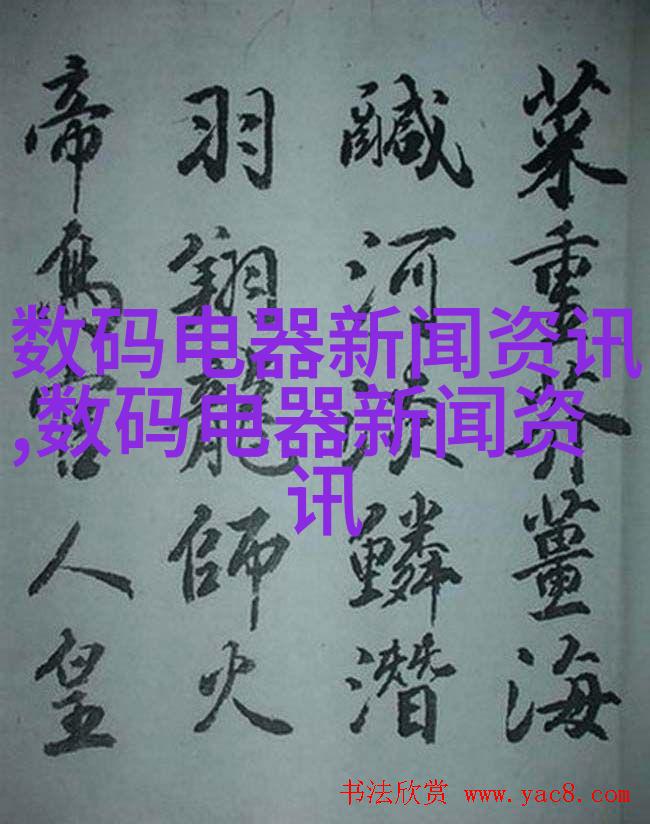 菜重芥薑海
鹹河淡鱗潛
羽翔龍師火
帝鳥官人皇
数码电器新闻资讯
,数码电器新闻资
讯
书法欣赏 www.yac8.com